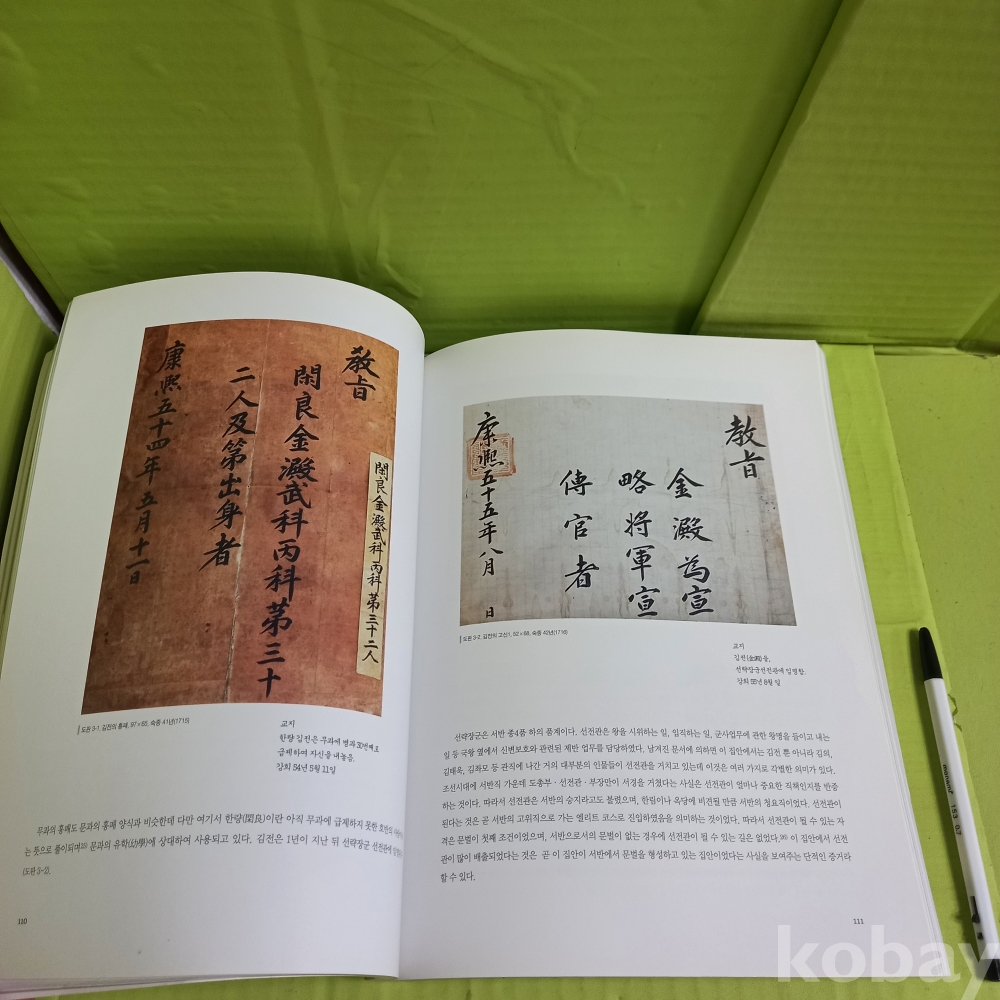 敎旨
閑良金澱武科丙科第三十
二人及第出身者
康熙五十四年五月十一日
閑良金澱武科丙科第三十二人
도판 3-1. 김전의 홍패, 97×65, 숙종 41년(1715)
교지
한량 김전은 무과에 병과 30번째로
급제하여 자신을 내놓음.
강희 54년 5월 11일
무과의 홍패도 문과의 홍패 양식과 비슷한데 다만 여기서 한량(閑良)이란 아직 무과에 급제하지 못한 호반의
는 뜻으로 풀이되며 문과의 유학(幼學)에 상대하여 사용되고 있다. 김전은 1년이 지난 뒤 선략장군 선전관에
(도판 3-2).
110
敎旨
金澱為宣
略將軍宣
傳官者
康熙五十五年八月 日
도판 3-2. 김전의 고신1, 52×68, 숙종 42년(1716)
교지
김전(金澱)을,
선략장군선전관에 임명함.
강희 55년 8월 일
선략장군은 서반 종4품 하의 품계이다. 선전관은 왕을 시위하는 일, 입직하는 일, 군사업무에 관한 왕명을 들이고 내는
일 등 국왕 옆에서 신변보호와 관련된 제반 업무를 담당하였다. 남겨진 문서에 의하면 이 집안에서는 김전 뿐 아니라 김의,
김태욱, 김좌모 등 관직에 나간 거의 대부분의 인물들이 선전관을 거치고 있는데 이것은 여러 가지로 각별한 의미가 있다.
조선시대에 서반직 가운데 도총부·선전관·부장만이 서경을 거쳤다는 사실은 선전관이 얼마나 중요한 직책인지를 반증
하는 것이다. 따라서 선전관은 서반의 승지라고도 불렸으며, 한림이나 옥당에 비견될 만큼 서반의 청요직이었다. 선전관이
된다는 것은 곧 서반의 고위직으로 가는 엘리트 코스로 진입하였음을 의미하는 것이었다. 따라서 선전관이 될 수 있는 자
격은 문벌이 첫째 조건이었으며, 서반으로서의 문벌이 없는 경우에 선전관이 될 수 있는 길은 없었다. 이 집안에서 선전
관이 많이 배출되었다는 것은 곧 이 집안이 서반에서 문벌을 형성하고 있는 집안이었다는 사실을 보여주는 단적인 증거라
할 수 있다.
111
monami 153 0.7
kobay